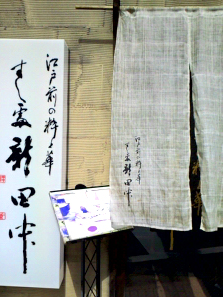 江戸前の粋と華
すし處 新田中
江戸前の粋と華
すし處 新田中